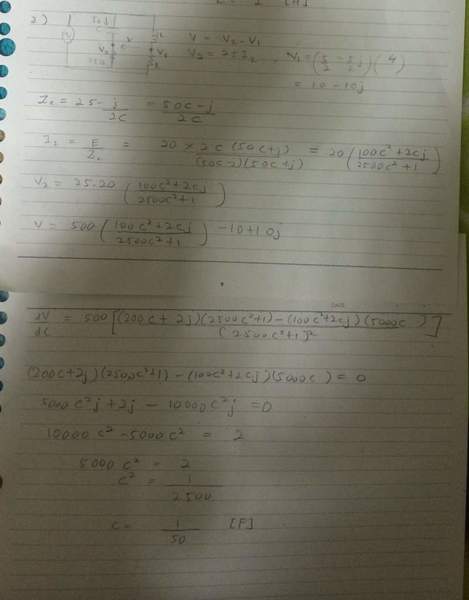 2)
V = V₂ - V₁
V₂ = 25I₂ , V₁ = (5/2 - 5/2 j)(4)
= 10 - 10j
Z₂ = 25 - j/2C = 50C - j/2C
I₂ = E/Z₂ = 20 × 2C (50C + j)/(50C - j)(50C + j) = 20 (100C² + 2Cj/2500C² + 1)
V₂ = 25·20 (100C² + 2Cj/2500C² + 1)
V = 500 (100C² + 2Cj/2500C² + 1) - 10 + 10j
dV/dC = 500 [(200C + 2j)(2500C² + 1) - (100C² + 2Cj)(5000C)/(2500C² + 1)²]
(200C + 2j)(2500C² + 1) - (100C² + 2Cj)(5000C) = 0
5000C²j + 2j - 10000C²j = 0
10000C² - 5000C² = 2
5000C² = 2
C² = 1/2500
C = 1/50 [F]